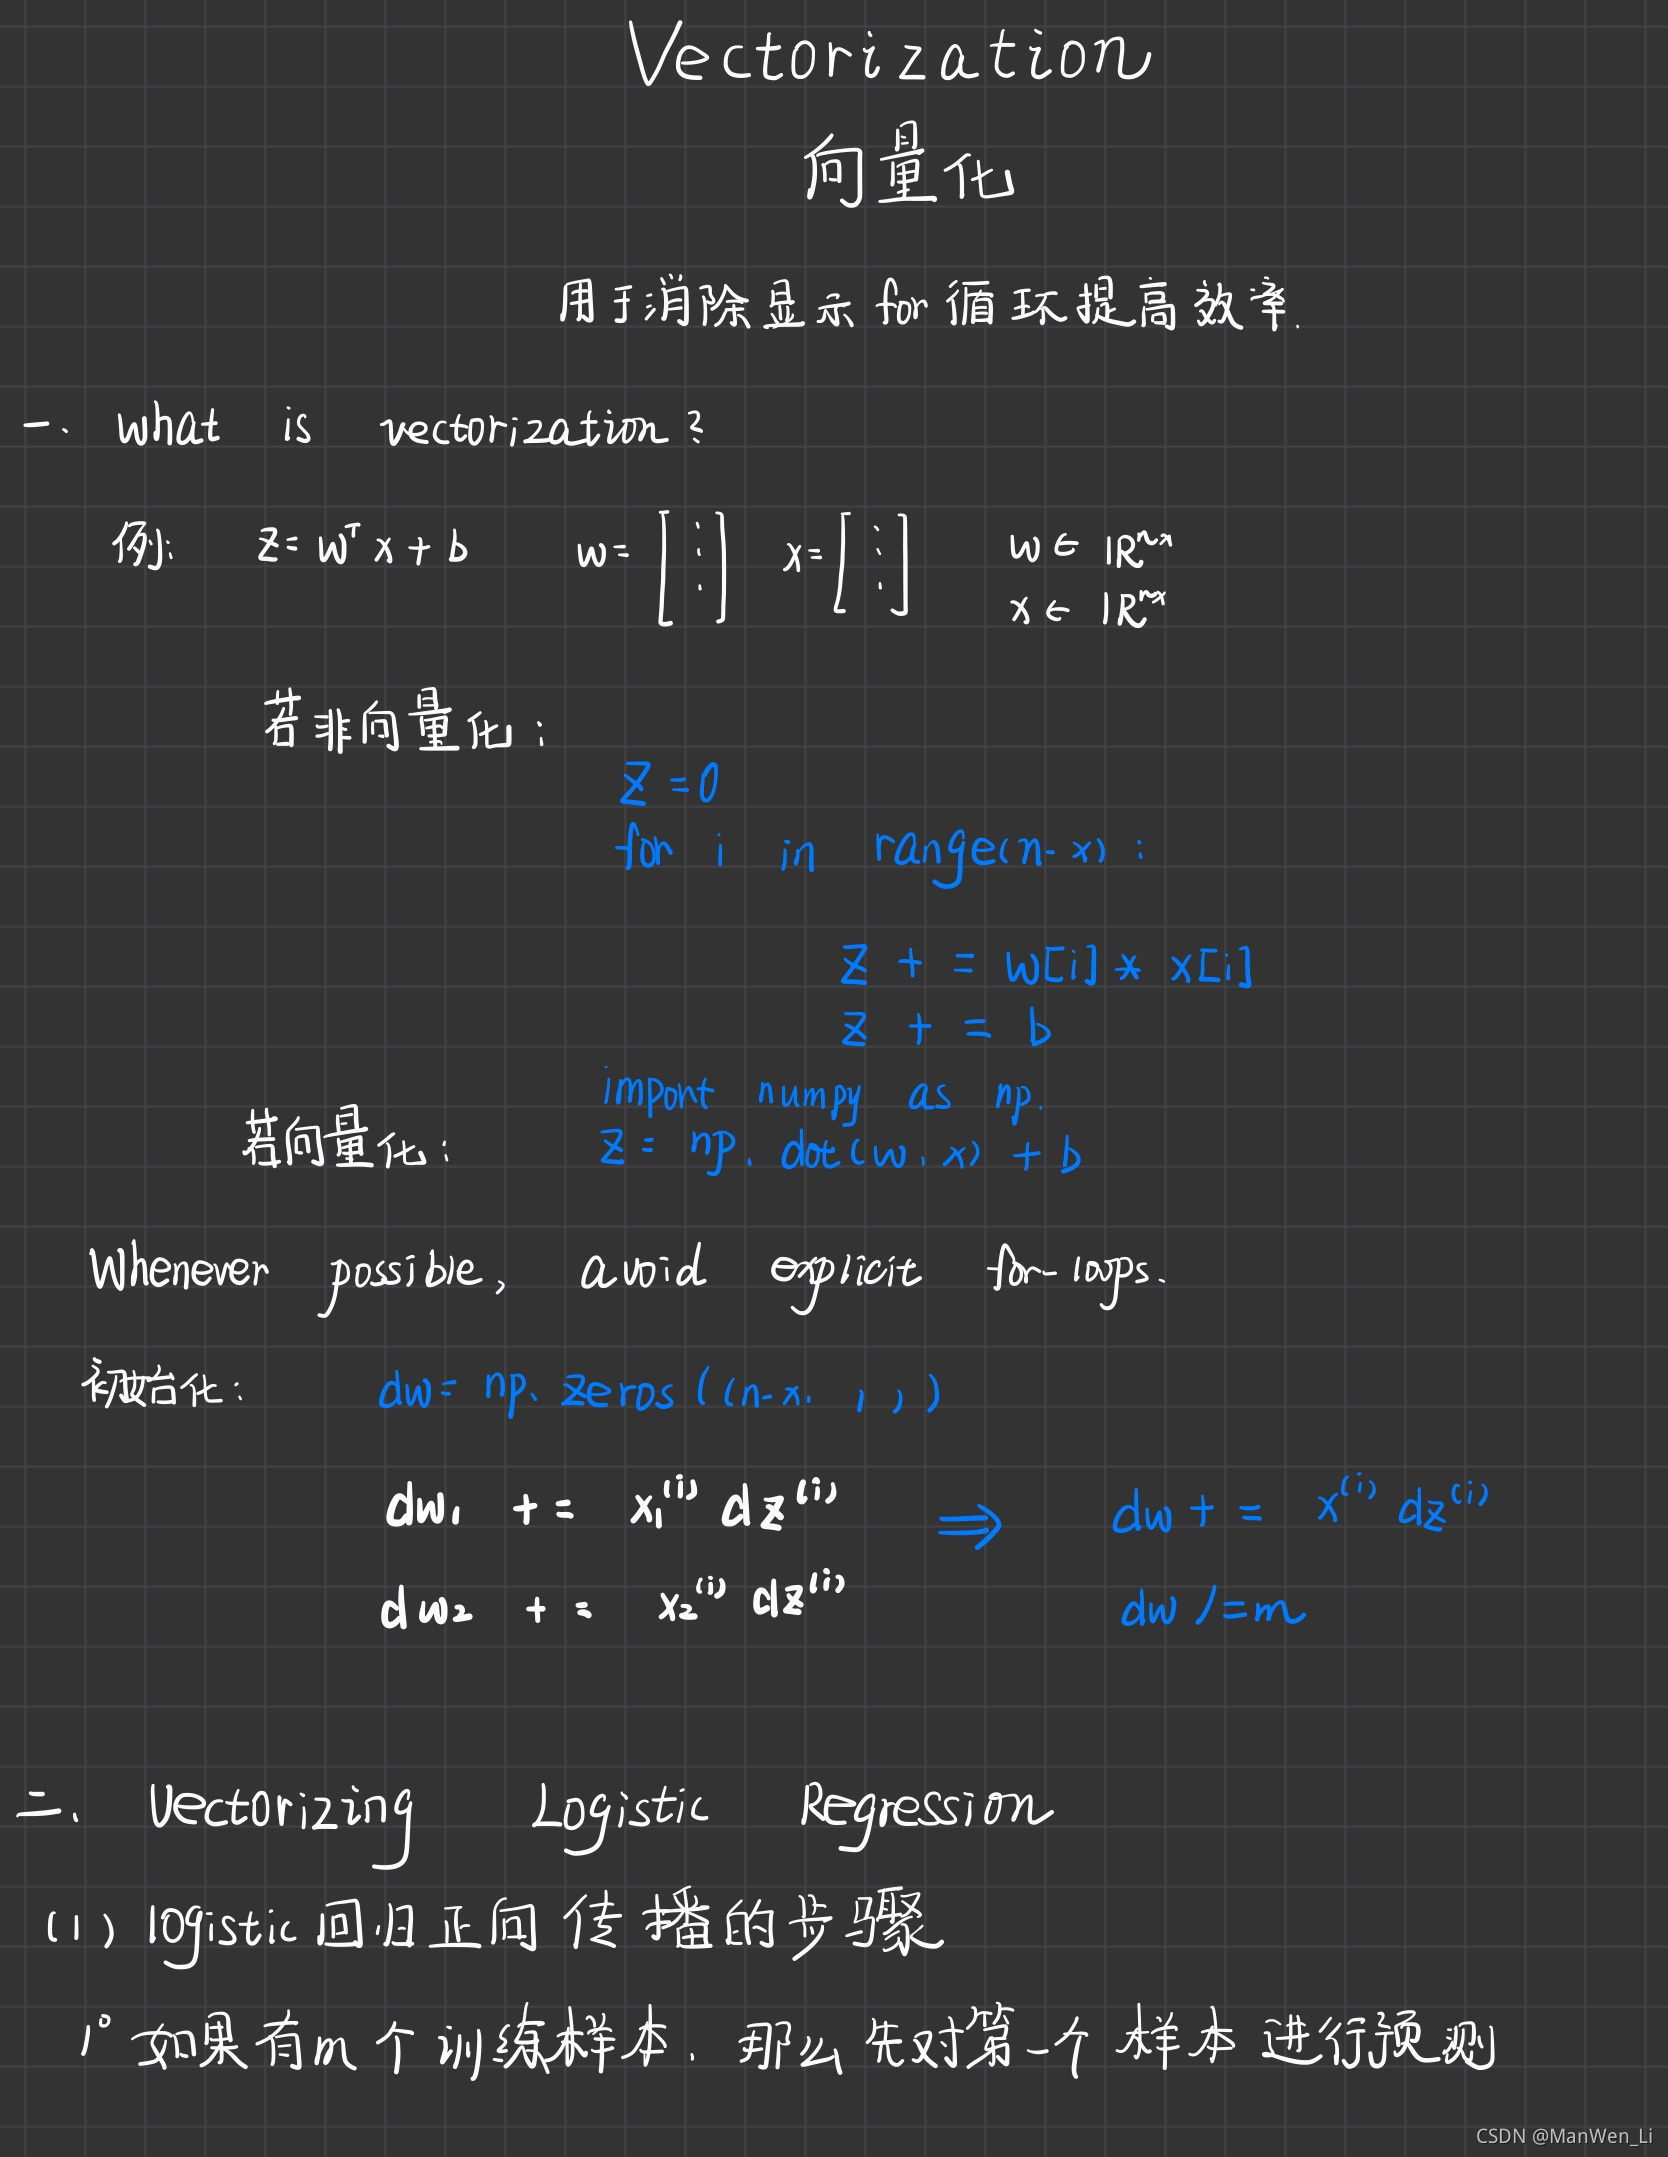 Vectorization
向量化
用于消除显示for循环提高效率.
一. what is vectorization?
例: z=wᵀx+b w=[⋮] x=[⋮] w∈ℝⁿˣ
x∈ℝⁿˣ
若非向量化:
z=0
for i in range(n-x):
z += w[i]*x[i]
z += b
import numpy as np.
若向量化: z= np.dot(w,x)+b
Whenever possible, avoid explicit for-loops.
初始化: dw= np.zeros((n-x, , ,)
dw₁ += x₁⁽ⁱ⁾ dz⁽ⁱ⁾ ⇒ dw += x⁽ⁱ⁾ dz⁽ⁱ⁾
dw₂ += x₂⁽ⁱ⁾ dz⁽ⁱ⁾ dw /=m
二. Vectorizing Logistic Regression
(1) logistic回归正向传播的步骤
1° 如果有m个训练样本, 那么先对第一个样本进行预测
CSDN @ManWen_Li